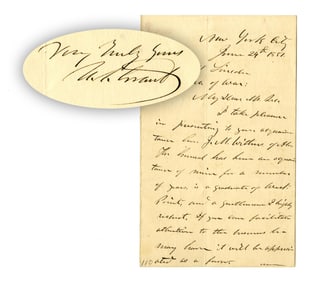 Very Truly Yours
U. S. Grant
New York City
June 24th 1881.
Lincoln
of War:
My Dear Mr. Sec.
I take pleasure
in presenting to your acquain
tance Gen. J. M. Withers of Ala.
The General has been an acquain
tance of mine for a number
of years, is a graduate of West
Point, and a gentleman I highly
respect. If you can facilitate
attention to the business he
may have it will be appreci
ated as a favor